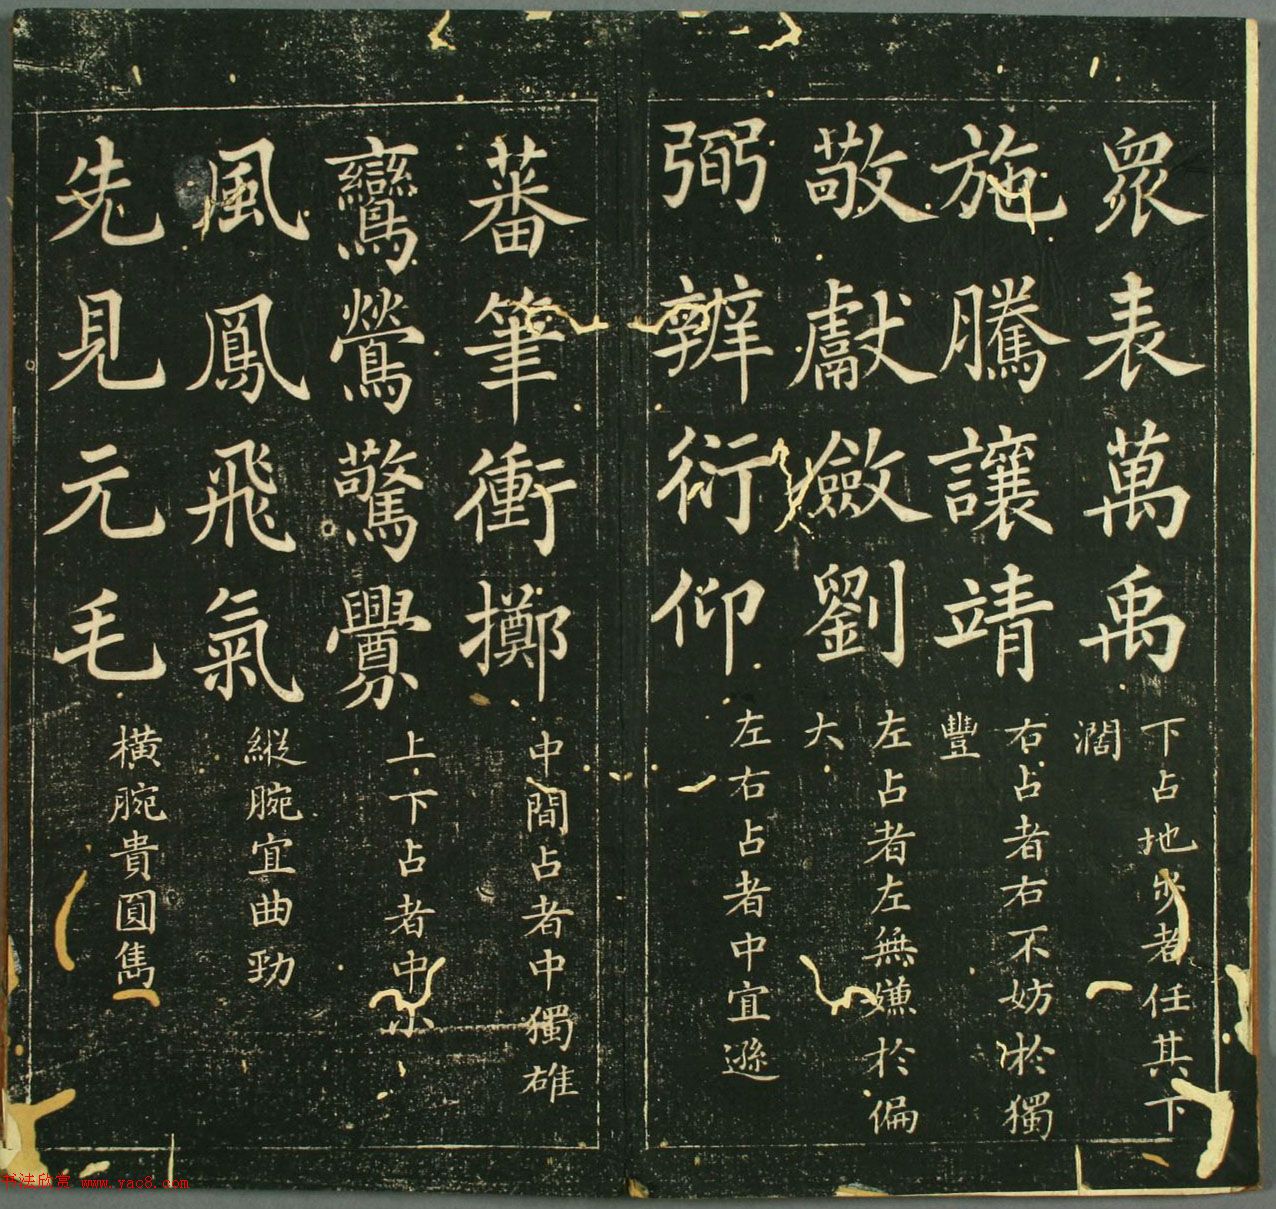 衆表萬禹
下占地步者任其下
濶
施騰讓靖
右占者右不妨於獨
豐
敬獻斂劉
左占者左無嫌於偏
大
弼辨衍仰
左右占者中宜遜
蕃筆衝擲
中間占者中獨雄
鸞鶯驚釁
上下占者中小
風鳳飛氣
縱腕宜曲勁
先見元毛
橫腕貴圓雋
书法欣赏 www.yac8.com